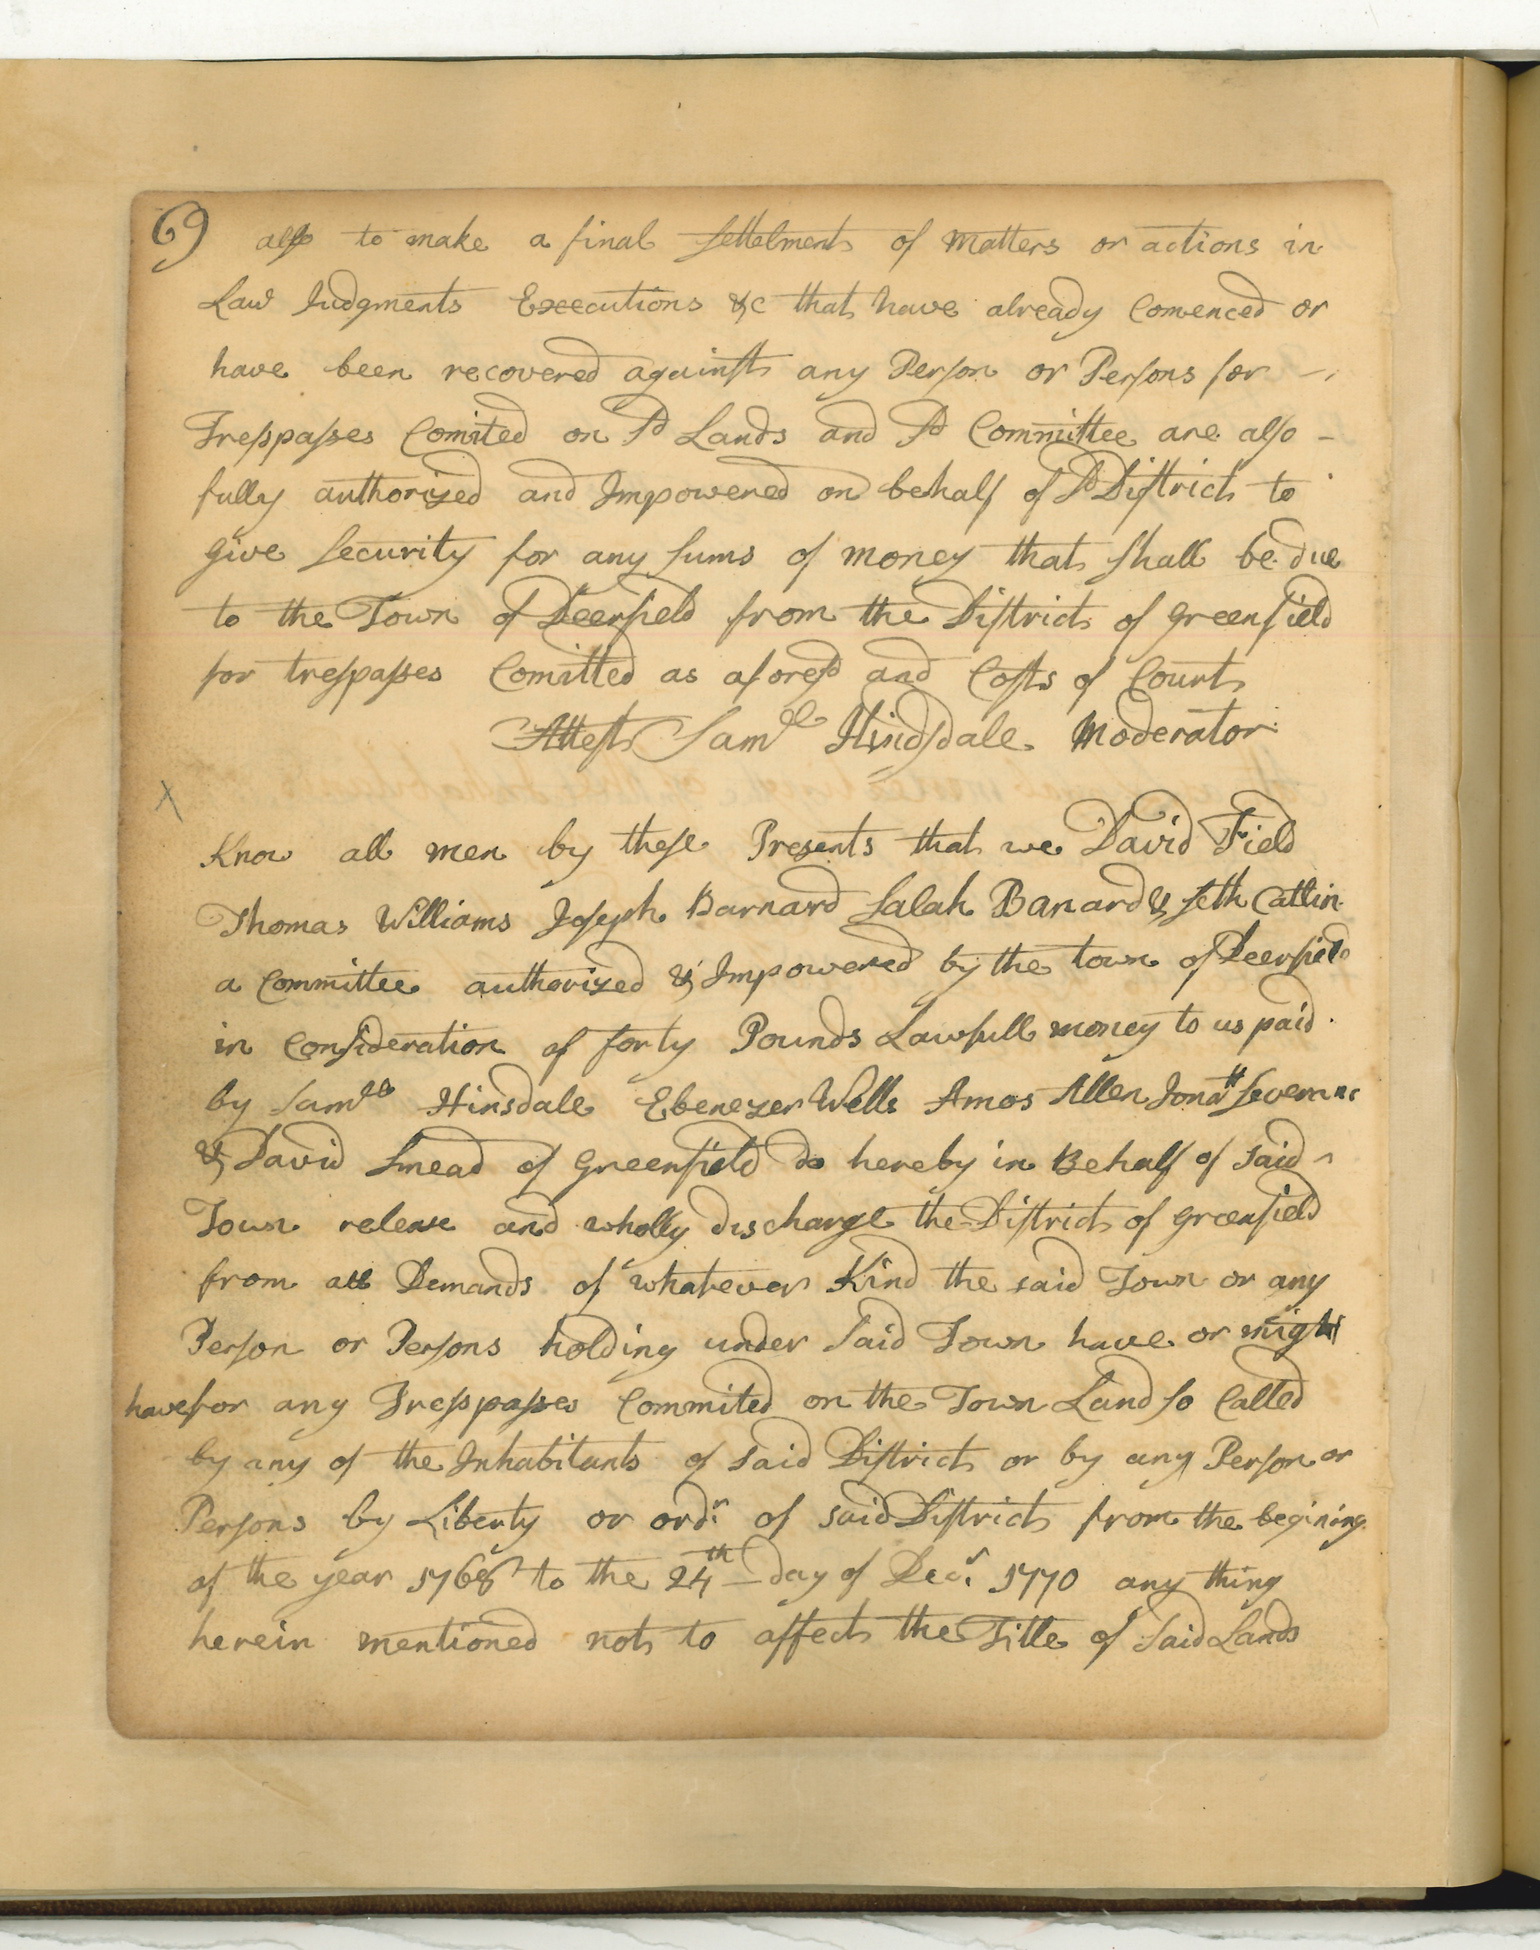 69 also to make a final settelment of matters or actions in
Law Judgments Executions &c that have already Comenced or
have been recovered against any Person or Persons for -
Trespasses Comited on Sd Lands and Sd Committee are also -
fully authorized and Impowered on behalf of Sd District to
give security for any sums of money that shall be due
to the Town of Deerfield from the District of Greenfield
for trespasses Comitted as aforesd and Costs of Court
Attest Samll Hindsdale Moderator
X
Know all men by these Presents that we David Field
Thomas Williams Joseph Barnard Salah Banard & Seth Catlin
a Committee authorized & Impowered by the town of Deerfield
in Consideration of forty Pounds Lawfull money to us paid
by Samll Hinsdale Ebenezer Wells Amos Allen Jonath Severanc
& David Smead of Greenfield do hereby in Behalf of said
Town release and wholly discharge the District of Greenfield
from all Demands of whatever Kind the said Town or any
Person or Persons holding under said Town have or might
have for any Trespasses Commited on the Town Land so Called
by any of the Inhabitants of said District or by any Person or
Persons by Liberty or ordr of said District from the begining
of the year 1768 to the 24th day of Decr 1770 any thing
herein mentioned not to affect the Title of said Lands